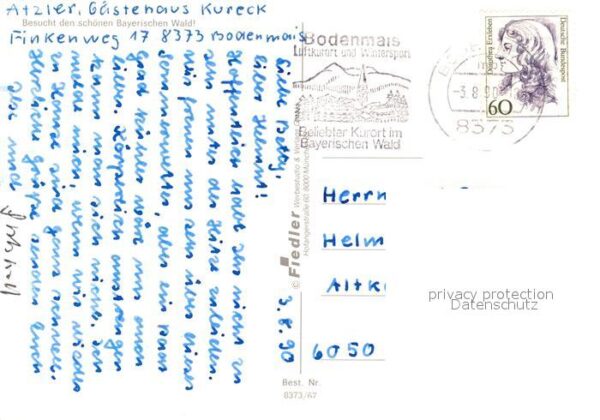 Atzler, Gästehaus Kureck
Besucht den schönen Bayerischen Wald!
Finkenweg 17 8373 Bodenmais
3.8.90
Liebe Betty,
lieber Helmut!
Hoffentlich habt Ihr nicht zu
sehr unter der Hitze zu leiden.
Wir freuen uns zwar über dieses
Sommerwetter, aber ein paar
Grad kühler wären uns auch
lieber. Körperlich anstrengen
kann man sich nicht. Ich
melde mich, wenn wir wieder
zu Hause sind ganz schnell.
Herzliche Grüße senden Euch
und
© Fiedler Werbestudio & Verlag
Bodenmais
Luftkurort und Wintersport
Beliebter Kurort im
Bayerischen Wald
-3.8.90
8373
Deutsche Bundespost
60
Herrn
Helm
Altk
6050
privacy protection
Datenschutz
Best. Nr.
8373/67